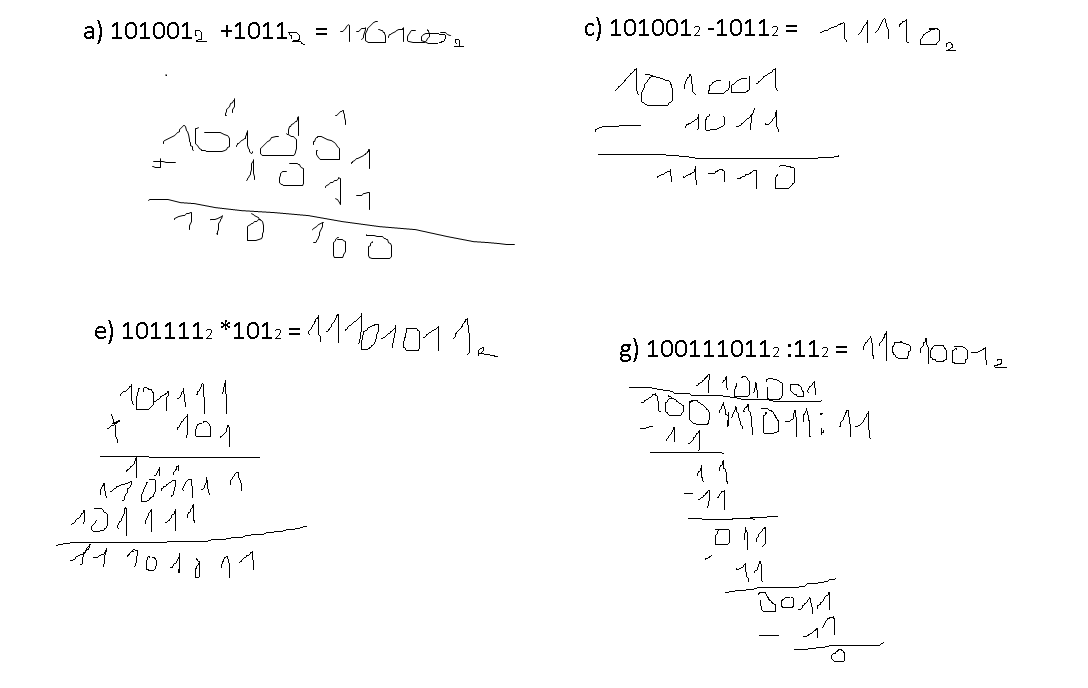 a) 101001₂ +1011₂ = 110100₂
1 1 1
101001
+ 1 0 1 1
1 1 0 1 0 0
c) 101001₂ -1011₂ = 11110₂
101001
- 1011
11110
e) 101111₂ *101₂ = 11101011₂
101111
+ 101
1 1 1
101111
101111
11101011
g) 100111011₂ :11₂ = 1101001₂
1101001
100111011: 11
- 11
11
-11
011
- 11
0011
- 11
0